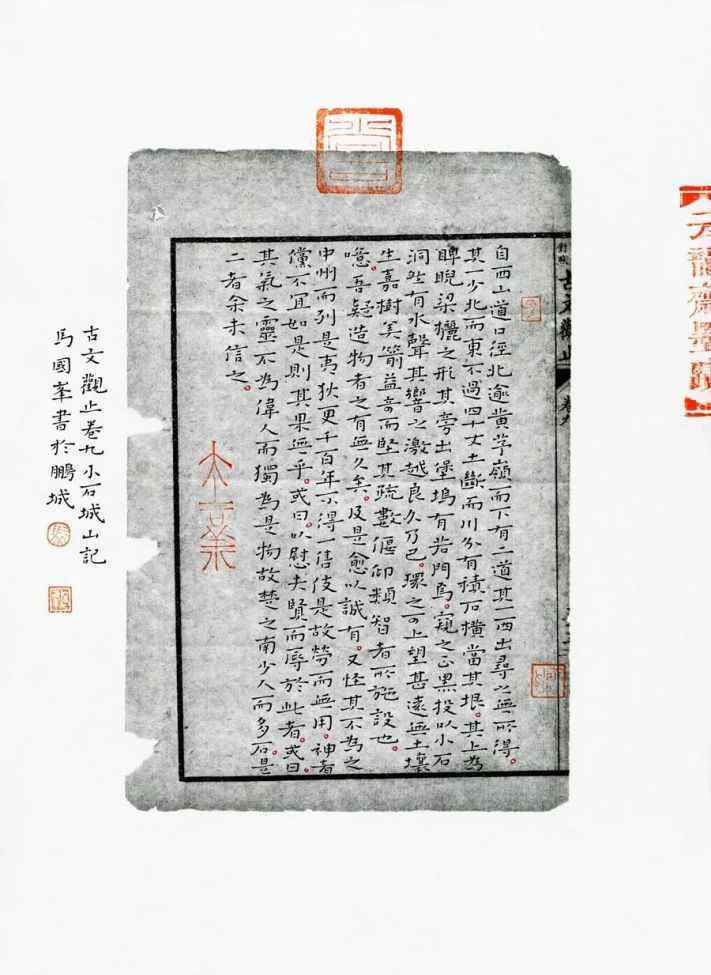 古文觀止 卷九
自西山道口徑北逾黄茅嶺而下有二道其一西出尋之無所得。
其一少北而東不過四十丈土斷而川分有積石橫當其垠。其上為
睥睨梁欐之形其旁出堡塢有若門焉。窺之正黑投以小石
洞然有水聲其響之激越良久乃已。環之可上望甚遠無土壤
生嘉樹美箭益奇而堅其疏數偃仰類智者所施設也。
噫。吾疑造物者之有無久矣。及是愈以誠有。又怪其不為之
中州而列是夷狄更千百年不得一售伎是故勞而無用。神者
儻不宜如是則其果無乎。或曰。以慰夫賢而辱於此者。或曰。
其氣之靈不為偉人而獨為是物故楚之南少人而多石。是
二者余未信之。
古文觀止卷九小石城山記
馬國峯書於鵬城